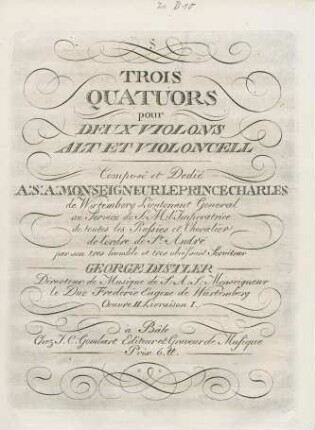 TROIS
QUATUORS
pour
DEUX VIOLONS
ALT ET VIOLONCELL
Composé et Dedié
A.S.A. MONSEIGNEUR LE PRINCE CHARLES
de Wirtemberg Lieutenant General
au Service de S.M. l'Imperatrice
de toutes les Russies et Chevalier
de l'ordre de St. André
par son tres humble et tres obeissant Serviteur
GEORGE DISTLER
Directeur de Musique de S.A.S. Monseigneur
le Duc Frederic Eugene de Wurtemberg
Oeuvre II. Livraison I.
à Bâle
Chez J. C. Gombart Editeur et Graveur de Musique
Prix 6 tt.